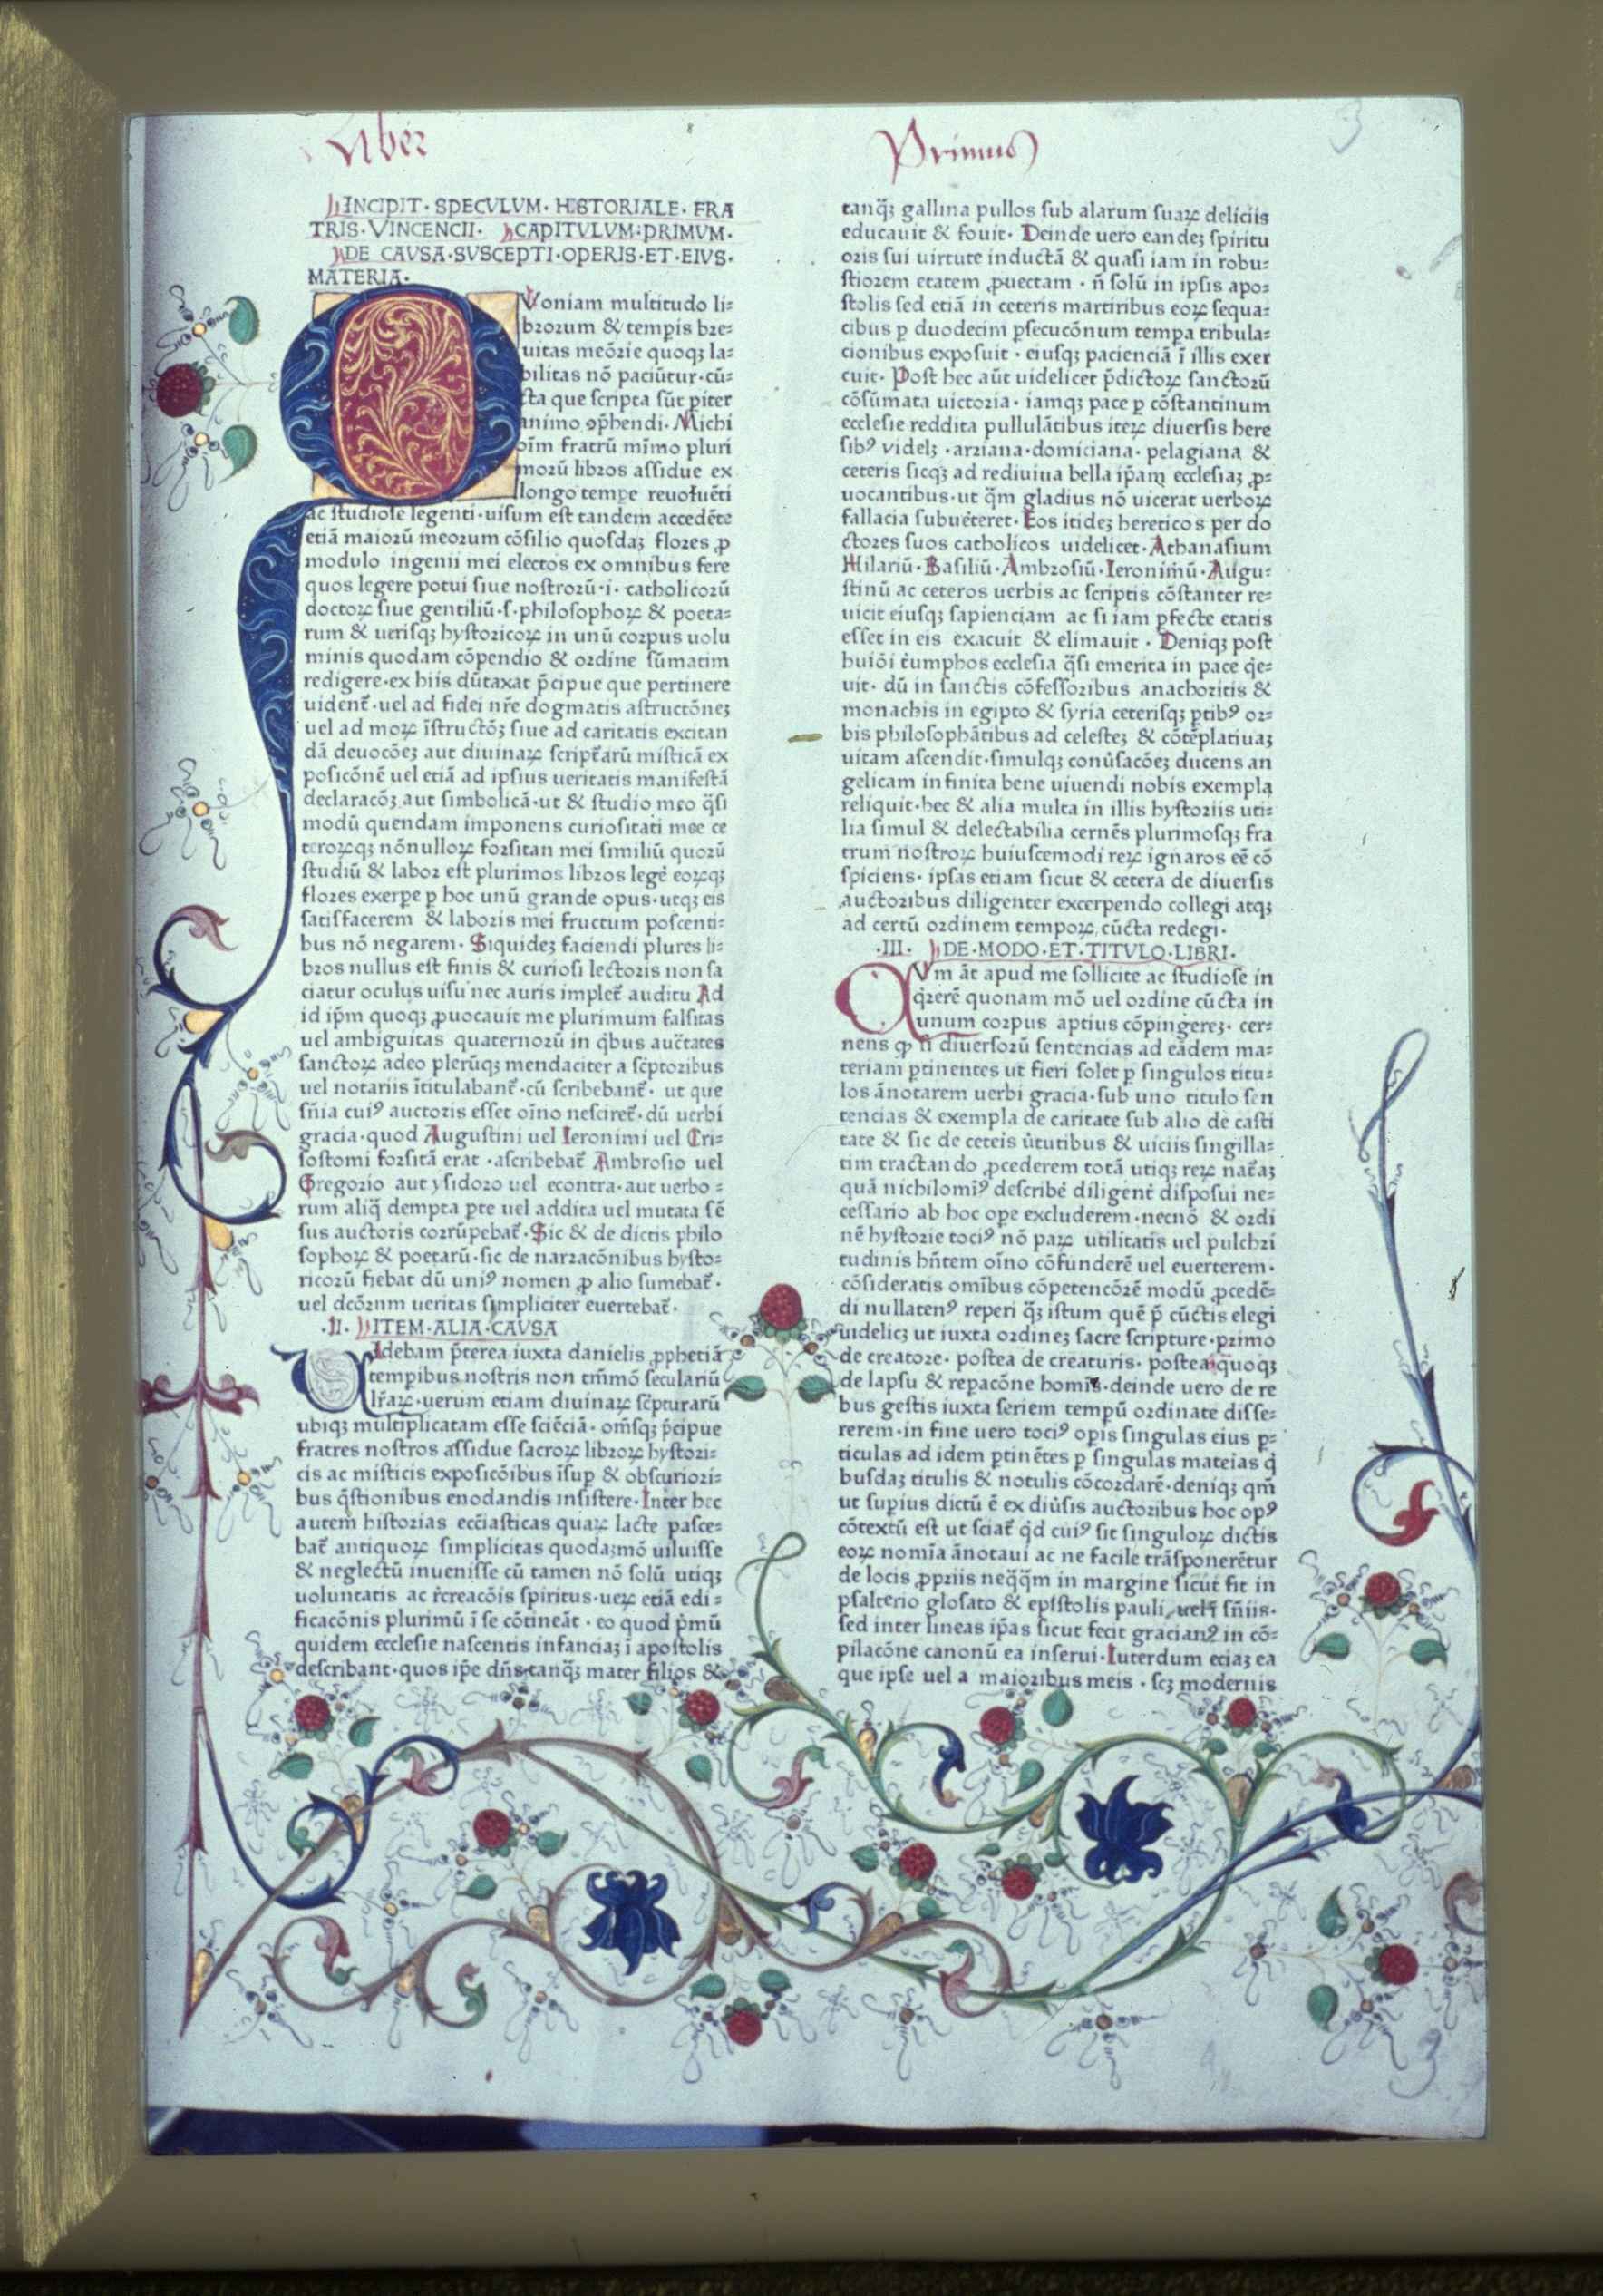 Liber
Primus
3
INCIPIT · SPECVLVM · HISTORIALE · FRA
TRIS · VINCENCII · CAPITVLVM · PRIMVM ·
DE CAVSA · SVSCEPTI · OPERIS · ET · EIVS ·
MATERIA ·
QVoniam multitudo li⸗
brorum & temp̄is bre⸗
uitas meōrie quoqꝫ la⸗
bilitas nō paciūtur · cū⸗
cta que scripta sūt pīter
animo ꝯp̄hendi · Michi
oīm fratrū mīmo pluri
morū libros assidue ex
longo tempe reuoluēti
ac studiose legenti · uisum est tandem accedēte
etiā maiorū meorum cōsilio quosdaꝫ flores ꝓ
modulo ingenii mei electos ex omnibus fere
quos legere potui siue nostrorū · i · catholicorū
doctoꝝ siue gentiliū · s · philosophoꝝ & poeta⸗
rum & utrisqꝫ hystoricoꝝ in unū corpus uolu
minis quodam cōpendio & ordine sūmatim
redigere · ex hiis dūtaxat p̄cipue que pertinere
uident̄ · uel ad fidei nr̄e dogmatis astructōneꝫ
uel ad moꝝ īstructōꝫ siue ad caritatis excitan
dā deuocōeꝫ aut diuinaꝝ script̄arū misticā ex
posicōnē uel etiā ad ipsius ueritatis manifestā
declaracōꝫ aut simbolicā · ut & studio meo q̄si
modū quendam imponens curiositati mee ce
teroꝝqꝫ nōnulloꝝ forsitan mei similiū quorū
studiū & labor est plurimos libros legē eoꝝqꝫ
flores exerpe p̱ hoc unū grande opus · utqꝫ eis
satisfacerem & laboris mei fructum poscenti⸗
bus nō negarem · Siquideꝫ faciendi plures li⸗
bros nullus est finis & curiosi lectoris non sa
ciatur oculus uisu nec auris implet̄ auditu Ad
id ip̄m quoqꝫ ꝓuocauit me plurimum falsitas
uel ambiguitas quaternorū in q̄bus auc̄tates
sanctoꝝ adeo plerūqꝫ mendaciter a sc̄ptoribus
uel notariis ītitulabant̄ · cū scribebant̄ · ut que
sn̄ia cuiꝰ auctoris esset oīno nesciret̄ · dū uerbi
gracia · quod Augustini uel Ieronimi uel Cri⸗
sostomi forsitā erat · ascribebat̄ Ambrosio uel
Gregorio aut ysidoro uel econtra · aut uerbo⸗
rum aliq̄ dempta p̱te uel addita uel mutata sē
sus auctoris corrūpebat̄ · Sic & de dictis philo
sophoꝝ & poetarū · sic de narracōnibus hysto⸗
ricorū fiebat dū uniꝰ nomen ꝓ alio sumebat̄ ·
uel dcōrum ueritas simpliciter euertebat̄ ·
· II · ITEM · ALIA · CAVSA
VIdebam p̄terea iuxta danielis ꝓphetiā
tempibus nostris non tm̄mō seculariū
lr̄aꝝ · uerum etiam diuinaꝝ sc̄pturarū
ubiqꝫ multiplicatam esse sciēciā · om̄sqꝫ p̄cipue
fratres nostros assidue sacroꝝ libroꝝ hystori⸗
cis ac misticis exposicōibus īsup̱ & obscuriori⸗
bus q̄stionibus enodandis insistere · Inter hec
autem historias ecc̄iasticas quaꝝ lacte pasce⸗
bat̄ antiquoꝝ simplicitas quodaꝫmō uiluisse
& neglectū inuenisse cū tamen nō solū utiqꝫ
uoluntatis ac r̄creacōis spiritus · ueꝝ etiā edi⸗
ficacōnis plurimū ī se cōtineāt · eo quod p̄mū
quidem ecclesie nascentis infanciaꝫ i apostolis
describant · quos ip̄e dn̄s tanqꝫ mater filios &
tanq̄ꝫ gallina pullos sub alarum suaꝝ deliciis
educauit & fouit · Deinde uero eandeꝫ spiritu
oris sui uirtute inductā & quasi iam in robu⸗
stiorem etatem ꝓuectam · n̄ solū in ipsis apo⸗
stolis sed etiā in ceteris martiribus eoꝝ sequa⸗
cibus p̱ duodecim p̱secucōnum temp̱a tribula⸗
cionibus exposuit · eiusqꝫ pacienciā ī illis exer
cuit · Post hec aūt uidelicet p̄dictoꝝ sanctorū
cōsūmata uictoria · iamqꝫ pace p̱ cōstantinum
ecclesie reddita pullulātibus iteꝝ diuersis here
sibꝰ videlꝫ · arriana · domiciana · pelagiana &
ceteris sicqꝫ ad rediuiua bella ip̄am ecclesiaꝫ ꝓ⸗
uocantibus · ut q̄m gladius nō uicerat uerboꝝ
fallacia subuēteret · Eos itideꝫ hereticos per do
ctores suos catholicos uidelicet · Athanasium
Hilariū · Basiliū · Ambrosiū · Ieronimū · Augu⸗
stinū ac ceteros uerbis ac scriptis cōstanter re⸗
uicit eiusqꝫ sapienciam ac si iam p̱fecte etatis
esset in eis exacuit & elimauit · Deniqꝫ post
huiōi t̄umphos ecclesia q̄si emerita in pace q̄e⸗
uit · dū in sanctis cōfessoribus anachoritis &
monachis in egipto & syria ceterisqꝫ p̱tibꝰ or⸗
bis philosophātibus ad celesteꝫ & cōtēplatiuaꝫ
uitam ascendit · simulqꝫ conūsacōeꝫ ducens an
gelicam infinita bene uiuendi nobis exempla
reliquit · hec & alia multa in illis hystoriis uti⸗
lia simul & delectabilia cernēs plurimosqꝫ fra
trum nostroꝝ huiuscemodi reꝝ ignaros eē cō
spiciens · ipsas etiam sicut & cetera de diuersis
auctoribus diligenter excerpendo collegi atqꝫ
ad certū ordinem tempoꝝ, cūcta redegi ·
· III · DE · MODO · ET · TITVLO · LIBRI ·
QVm āt apud me sollicite ac studiose in
q̄rerē quonam mō uel ordine cūcta in
unum corpus aptius cōpingereꝫ · cer⸗
nens ꝙ n̄ diuersorū sentencias ad eādem ma⸗
teriam p̱tinentes ut fieri solet p̱ singulos titu⸗
los ānotarem uerbi gracia · sub uno titulo sen
tencias & exempla de caritate sub alio de casti
tate & sic de ceteis ūtutibus & uiciis singilla⸗
tim tractando ꝓcederem totā utiqꝫ reꝝ nat̄aꝫ
quā nichilomīꝰ describē diligent̄ disposui ne⸗
cessario ab hoc ope excluderem · necnō & ordi
nē hystorie tociꝰ nō paꝝ utilitatis uel pulchri
tudinis hn̄tem oīno cōfunderē uel euerterem ·
cōsideratis omībus cōpetencōrē modū ꝓcedē⸗
di nullatenꝰ reperi q̄ꝫ istum quē p̄ cūctis elegi
uidelicꝫ ut iuxta ordineꝫ sacre scripture · primo
de creatore · postea de creaturis · postea quoqꝫ
de lapsu & rep̱acōne homīs · deinde uero de re
bus gestis iuxta seriem tempū ordinate disse⸗
rerem · in fine uero tociꝰ opīs singulas eius p̱⸗
ticulas ad idem p̱tinētes p̱ singulas mateias q̄
busdaꝫ titulis & notulis cōcordarē · deniqꝫ qm̄
ut sup̱ius dictū ē ex diūsis auctoribus hoc opꝰ
cōtextū est ut sciat̄ q̄d cuiꝰ sit singuloꝝ dictis
eoꝝ nomīa ānotaui ac ne facile trāsponerētur
de locis ꝓpriis neq̄q̄m in margine sicut fit in
psalterio glosato & epistolis pauli, uel ī sn̄iis ·
sed inter lineas ip̄as sicut fecit gracianꝰ in cō⸗
pilacōne canonū ea inserui · Iuterdum eciaꝫ ea
que ipse uel a maioribus meis · scꝫ modernis
3